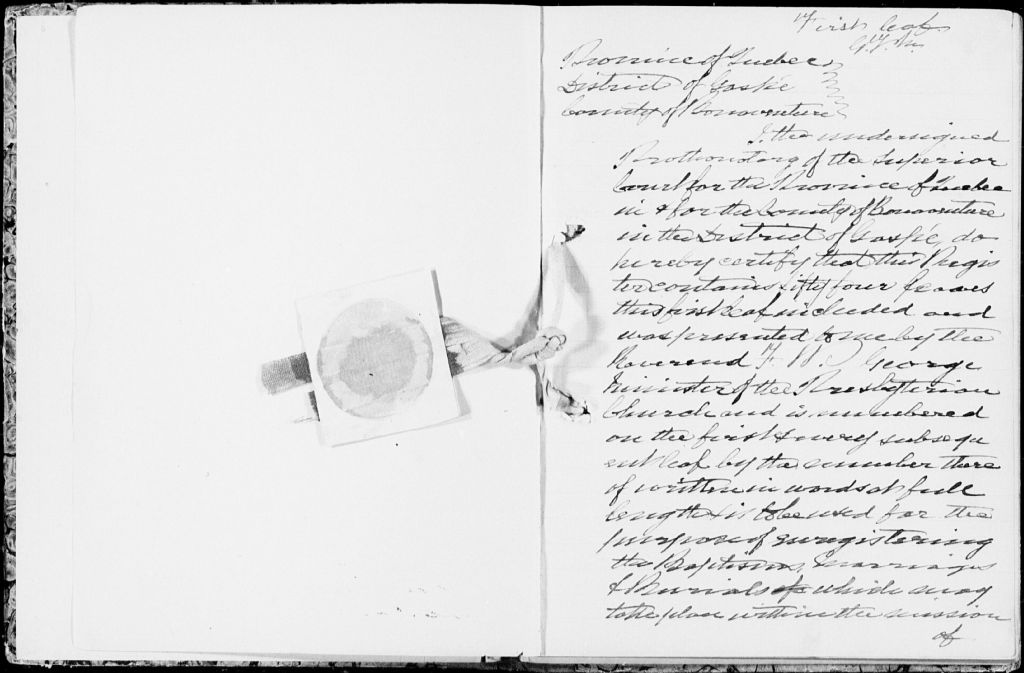 First leaf
Province of Quebec
District of Gaspé
County of Bonaventure
I, the undersigned
Prothonotary of the Superior
Court for the Province of Quebec
in & for the County of Bonaventure
in the District of Gaspé, do
hereby certify that this Regis
ter contains fifty four leaves
this first leaf included and
was presented to me by the
Reverend George
Minister of the Presbyterian
Church and is numbered
on the first & every subsequ
ent leaf by the number there
of written in words at full
length & is to be used for the
purpose of enregistering
the Baptisms, Marriages
& Burials which may
take place within the mission
of